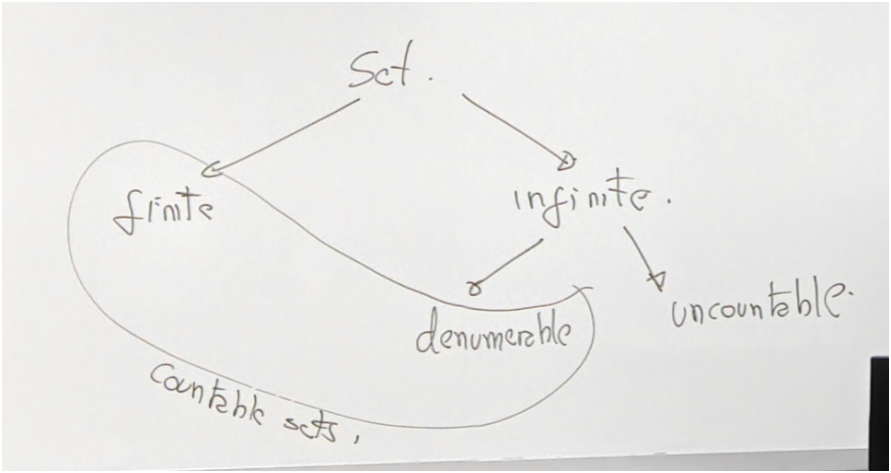 Set.
finite
infinite.
denumerable
uncountable.
Countable sets,